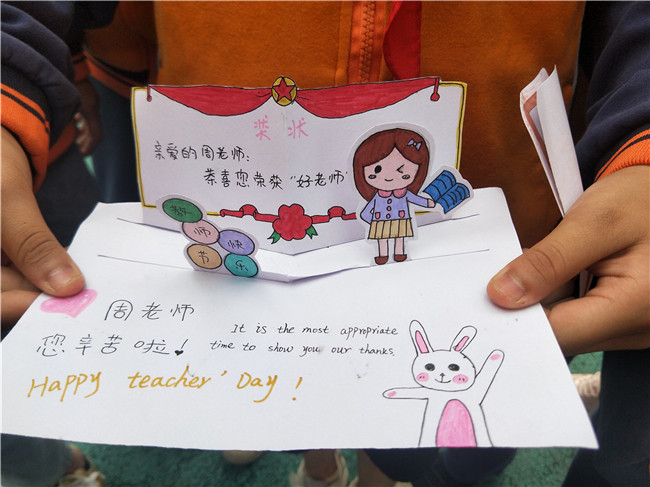 奖状
亲爱的周老师:
恭喜您荣获“好老师”
教
师
节
快
乐
周老师
您辛苦啦!
It is the most appropriate
time to show you our thanks.
Happy teacher' Day!